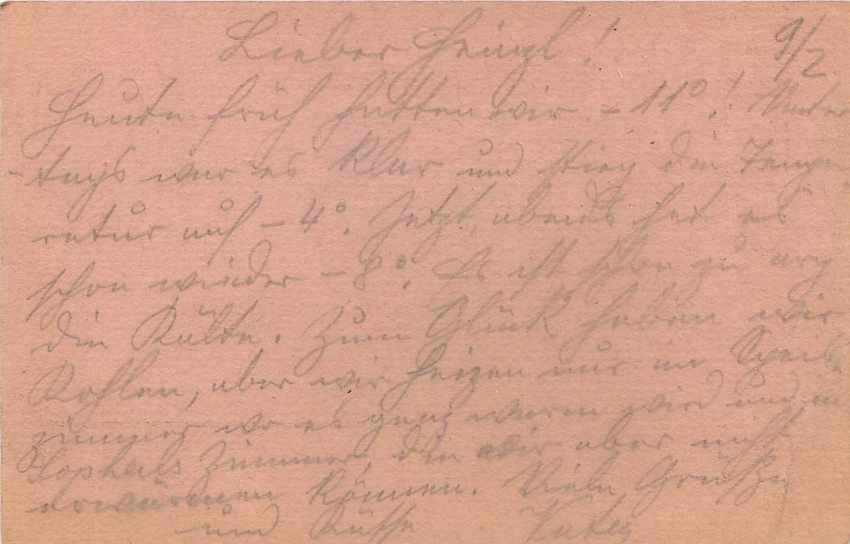 Lieber Heinzl! 9/2
Heute früh hatten wir -11°! Unter
-tags war es klar und stieg die Tempe
ratur auf -4°. Jetzt, abends hat es
schon wieder -8°. Es ist schon zu arg
die Kälte. Zum Glück haben wir
Kohlen, aber wir heizen nur im Speis
zimmer wo es ganz warm wird und in
Zimmer, die wir aber nicht
erwärmen können. Viele Grüße
und Küsse Vater